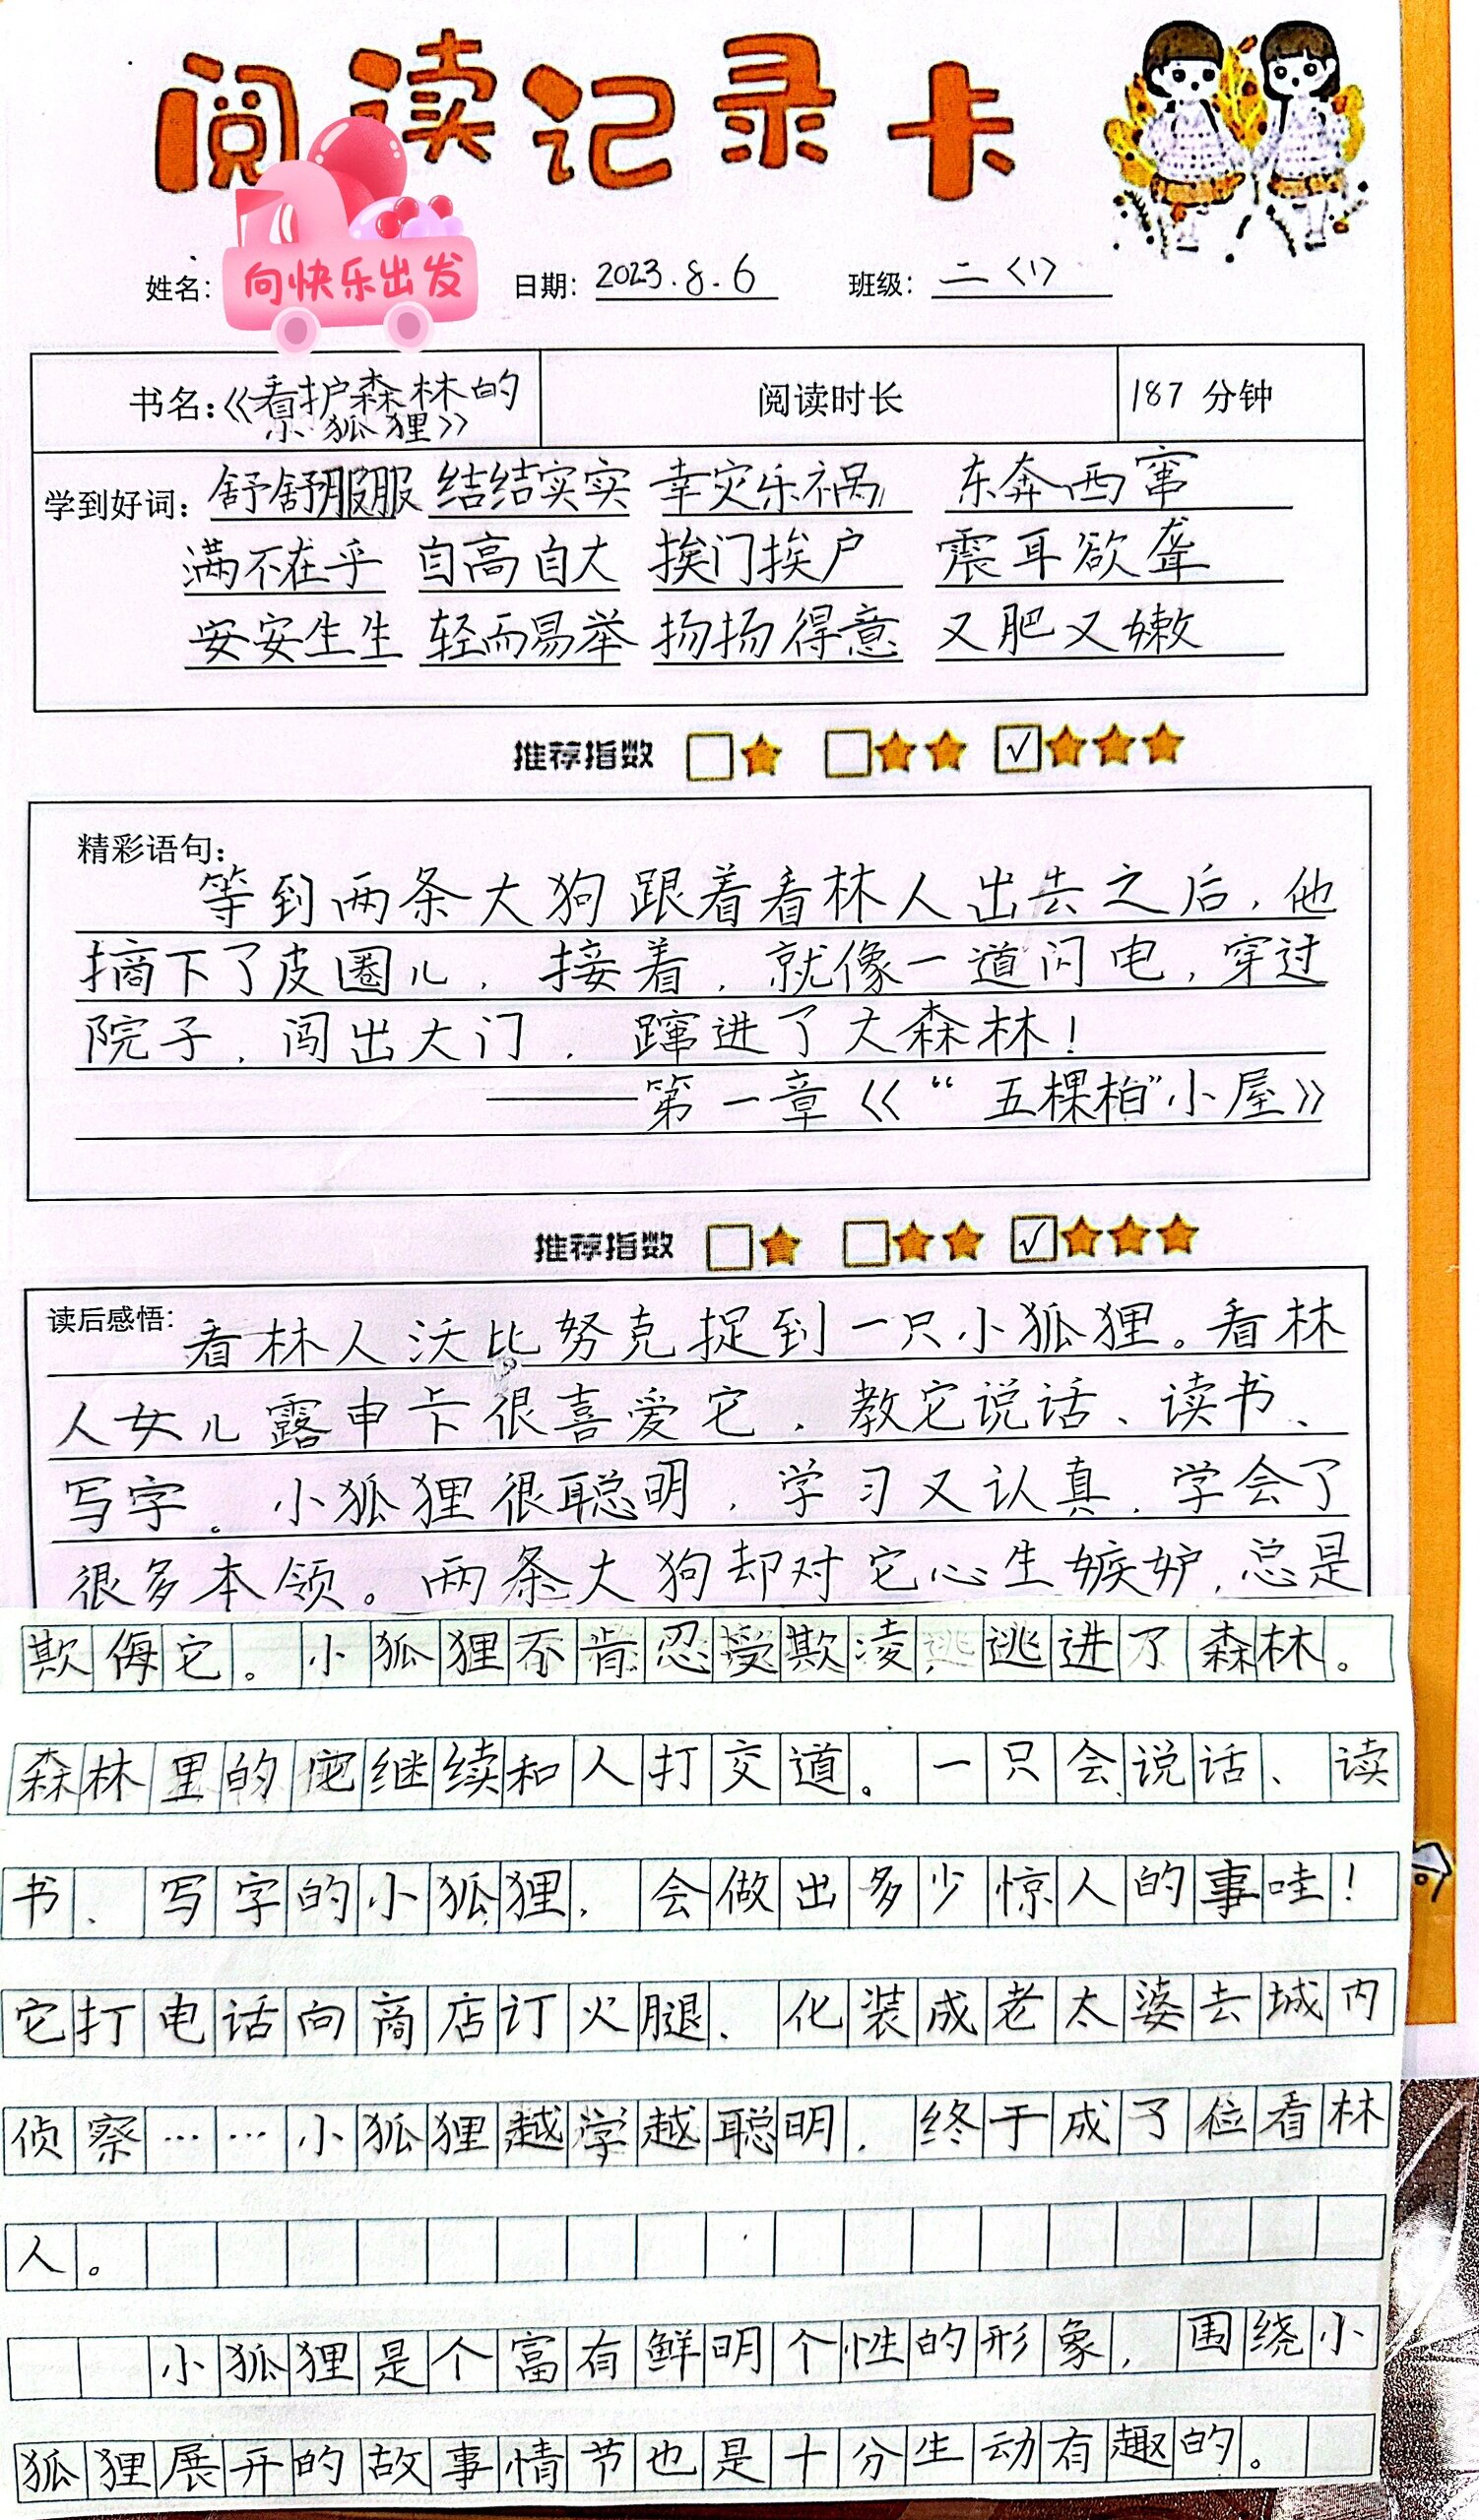 阅读记录卡
姓名： 向快乐出发 日期：2023.8.6 班级：二〈1〉
书名：《看护森林的小狐狸》 阅读时长 187 分钟
学到好词：舒舒服服 结结实实 幸灾乐祸 东奔西窜
满不在乎 自高自大 挨门挨户 震耳欲聋
安安生生 轻而易举 扬扬得意 又肥又嫩
推荐指数 ☐★ ☐★★ ☑★★★
精彩语句：
等到两条大狗跟着看林人出去之后，他
摘下了皮圈儿，接着，就像一道闪电，穿过
院子，闯出大门，蹿进了大森林！
——第一章《“五棵柏”小屋》
推荐指数 ☐★ ☐★★ ☑★★★
读后感悟：看林人沃比努克捉到一只小狐狸。看林
人女儿露申卡很喜爱它，教它说话、读书、
写字。小狐狸很聪明，学习又认真，学会了
很多本领。两条大狗却对它心生嫉妒，总是
欺侮它。小狐狸不肯忍受欺凌，逃进了森林。
森林里的它继续和人打交道。一只会说话、读
书、写字的小狐狸，会做出多少惊人的事哇！
它打电话向商店订火腿、化装成老太婆去城内
侦察……小狐狸越学越聪明，终于成了位看林
人。
小狐狸是个富有鲜明个性的形象，围绕小
狐狸展开的故事情节也是十分生动有趣的。